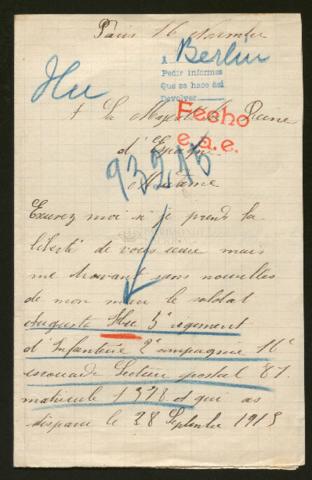 Paris 16 Novembre
Berlin
A
Pedir informes
Que se hace así
Devolver
Hu
A Sa Majesté la Reine
Fecho
e.a.e.
d'Espagne
93215
Madame
Excusez moi si je prend la
liberté de vous mais
me trouvant sans nouvelles
de mon mari le soldat
Auguste Hu 3e regiment
d'Infanterie 2e compagnie 16e
escouade Secteur postal 81
matricule 1378 et qui as
disparu le 28 Septembre 1915